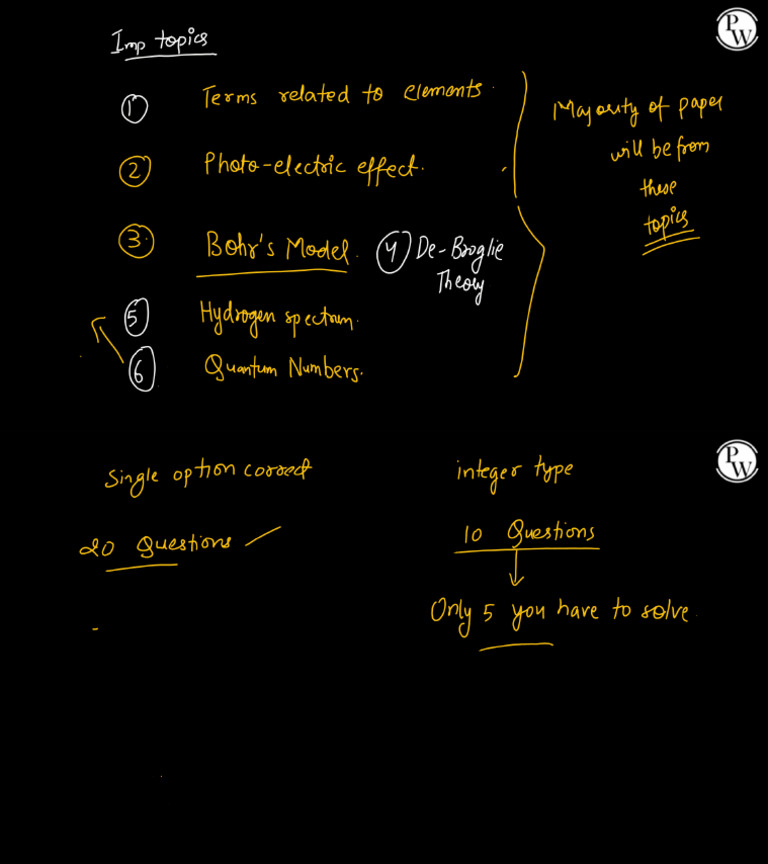 Imp topics
P
W
① Terms related to elements.
② Photo-electric effect.
③ Bohr's Model. ④ De-Broglie
Theory
⑤ Hydrogen spectrum.
⑥ Quantum Numbers.
Majority of paper
will be from
these
topics
P
W
Single option correct
20 Questions
integer type
10 Questions
Only 5 you have to solve.